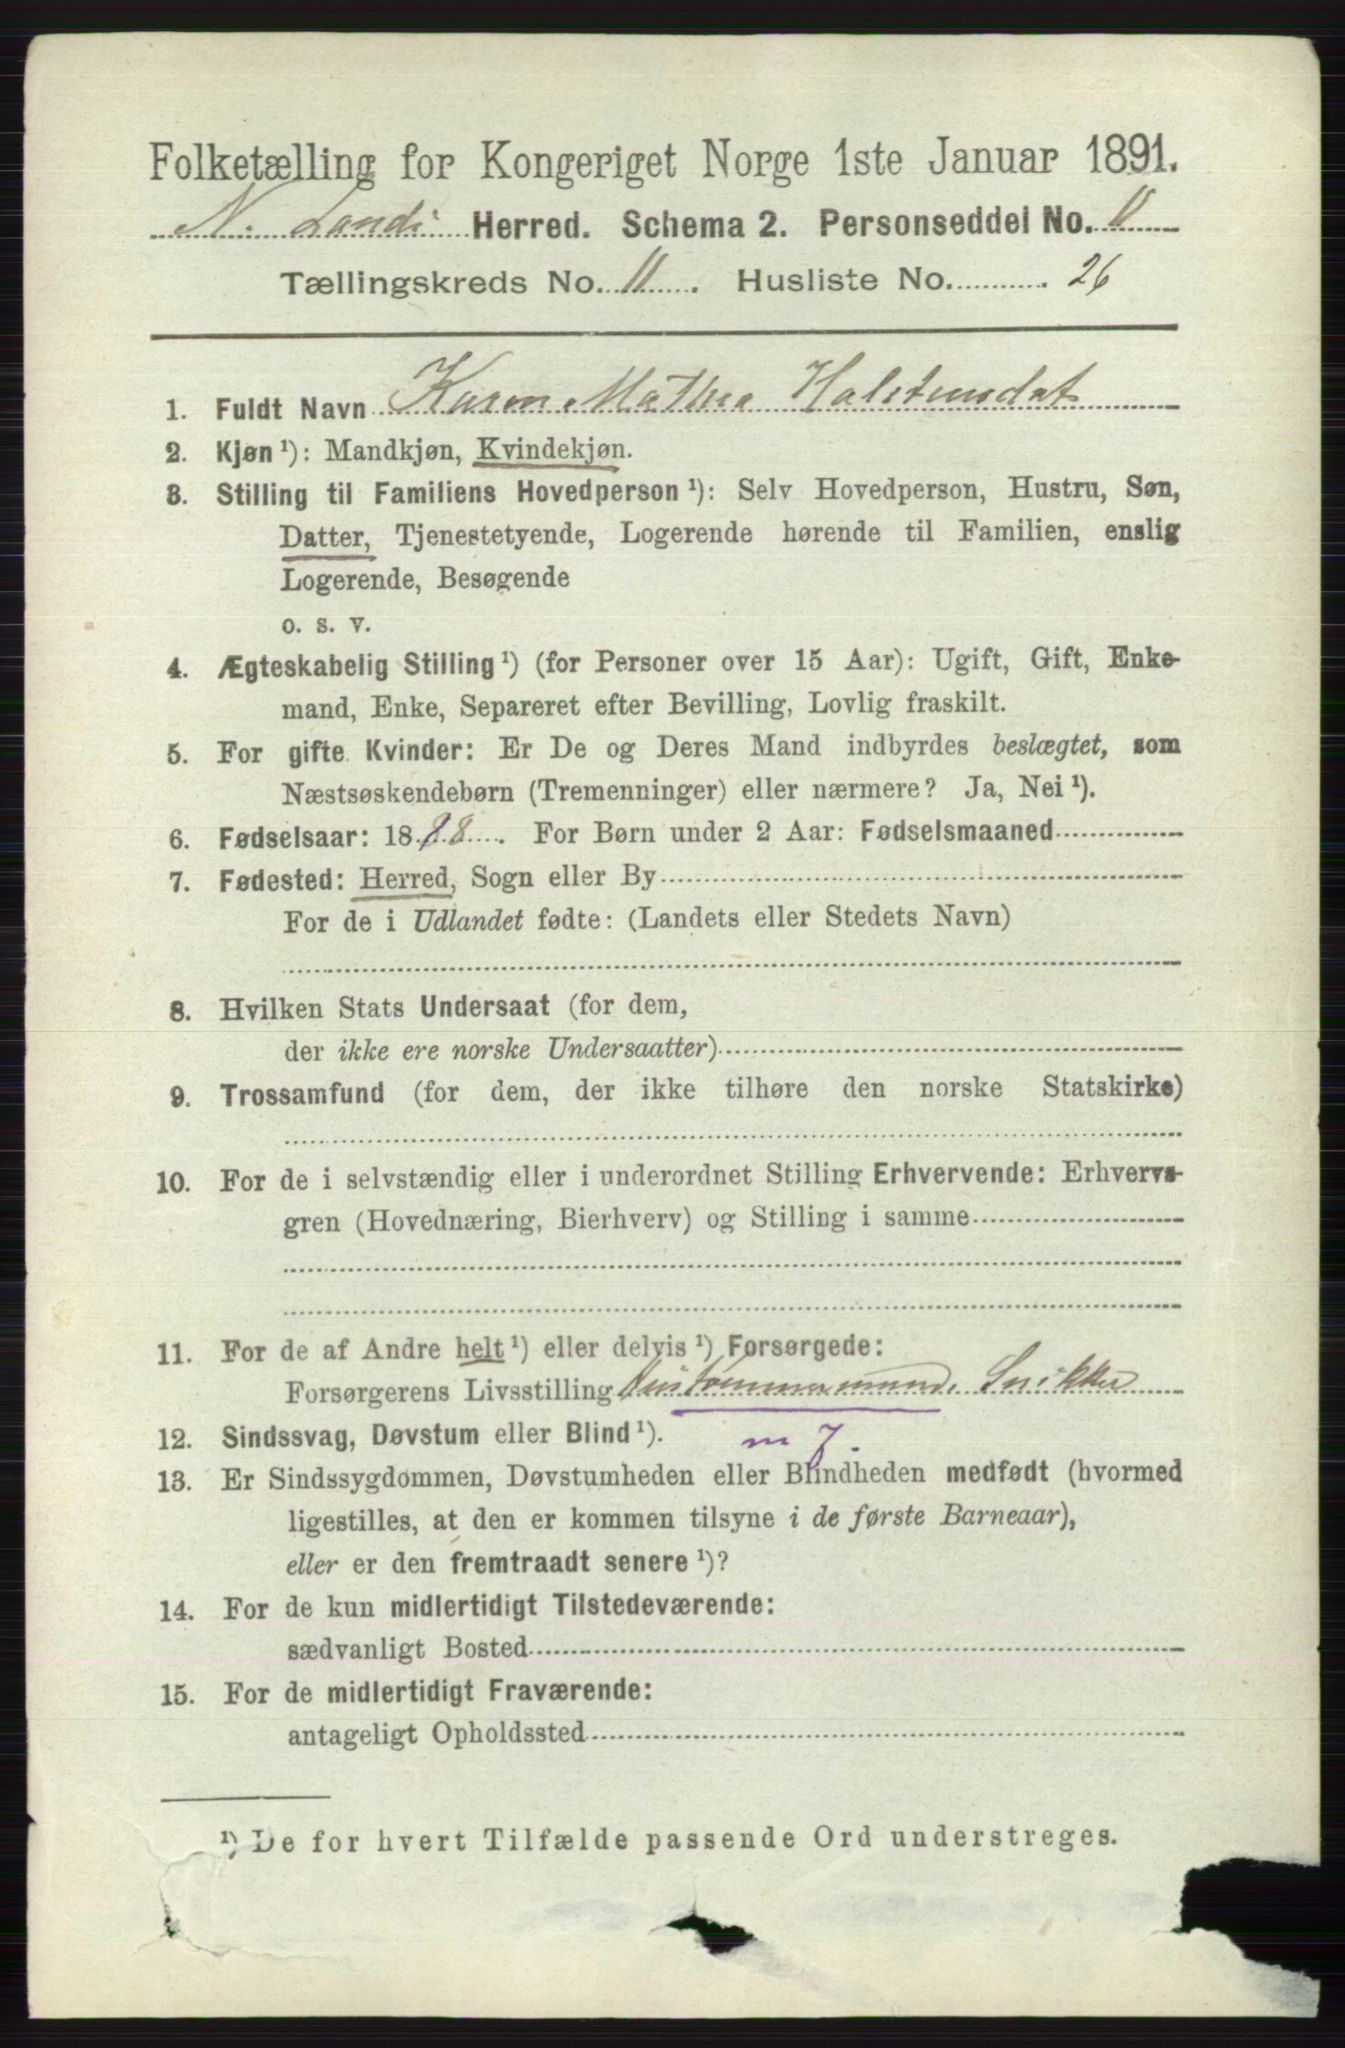 Folketælling for Kongeriget Norge 1ste Januar 1891.
N. Land Herred. Schema 2. Personseddel No. 11
Tællingskreds No. 11. Husliste No. 26
1. Fuldt Navn Karen Mathea
2. Kjøn ¹): Mandkjøn, Kvindekjøn.
3. Stilling til Familiens Hovedperson ¹): Selv Hovedperson, Hustru, Søn,
Datter, Tjenestetyende, Logerende hørende til Familien, enslig
Logerende, Besøgende
o. s. v.
4. Ægteskabelig Stilling ¹) (for Personer over 15 Aar): Ugift, Gift, Enke-
mand, Enke, Separeret efter Bevilling, Lovlig fraskilt.
5. For gifte Kvinder: Er De og Deres Mand indbyrdes beslægtet, som
Næstsøskendebørn (Tremenninger) eller nærmere? Ja, Nei ¹).
6. Fødselsaar: 1888. For Børn under 2 Aar: Fødselsmaaned
7. Fødested: Herred, Sogn eller By
For de i Udlandet fødte: (Landets eller Stedets Navn)
8. Hvilken Stats Undersaat (for dem,
der ikke ere norske Undersaatter)
9. Trossamfund (for dem, der ikke tilhøre den norske Statskirke)
10. For de i selvstændig eller i underordnet Stilling Erhvervende: Erhvervs-
gren (Hovednæring, Bierhverv) og Stilling i samme
11. For de af Andre helt ¹) eller delvis ¹) Forsørgede:
Forsørgerens Livsstilling Hustømmermand, Snikker
12. Sindssvag, Døvstum eller Blind ¹). m 7.
13. Er Sindssygdommen, Døvstumheden eller Blindheden medfødt (hvormed
ligestilles, at den er kommen tilsyne i de første Barneaar),
eller er den fremtraadt senere ¹)?
14. For de kun midlertidigt Tilstedeværende:
sædvanligt Bosted
15. For de midlertidigt Fraværende:
antageligt Opholdssted
¹) De for hvert Tilfælde passende Ord understreges.